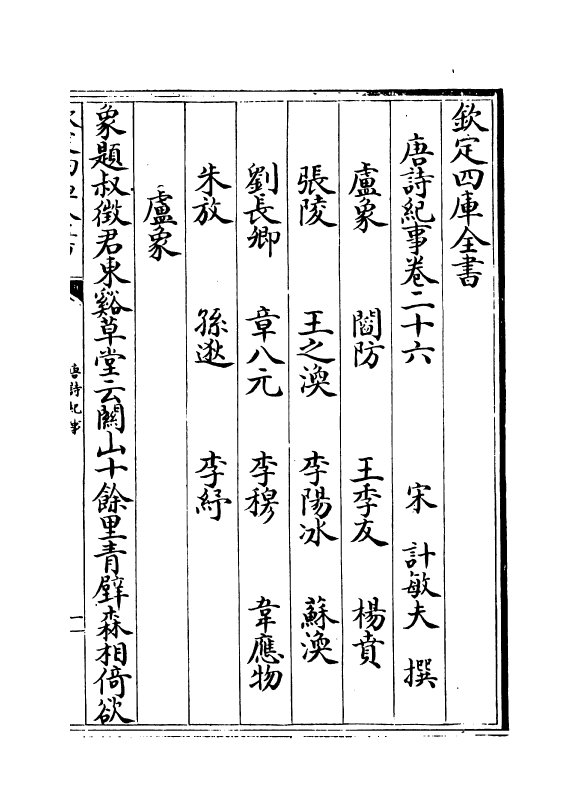 欽定四庫全書
唐詩紀事卷二十六 宋 計敏夫 撰
盧象 閻防 王季友 楊賁
張陵 王之渙 李陽冰 蘇渙
劉長卿 章八元 李穆 韋應物
朱放 孫逖 李紓
盧象
象題叔徵君東谿草堂云闗山十餘里青壁森相倚欲
唐詩紀事